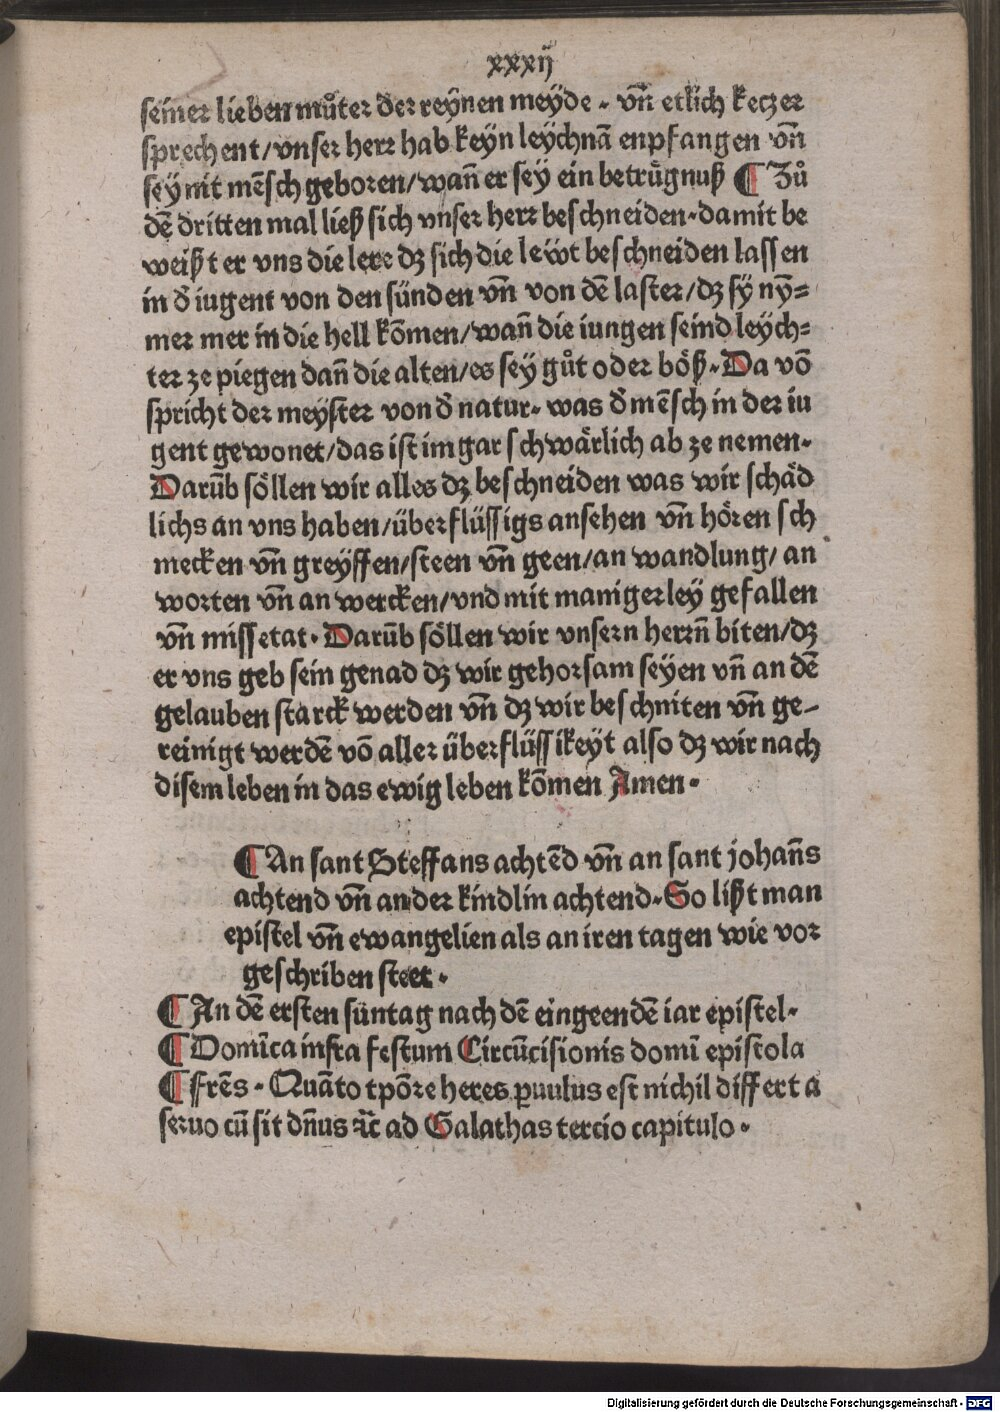 xxxij
seiner lieben můter der reynen meyde · vñ etlich keczer
sprechent/vnser herr hab keyn leychnā enpfangen vñ
sey nit mēsch geboren/wañ er sey ein betrůgnuß ¶ Zů
dē dritten mal ließ sich vnser herr beschneiden·damit be
weißt er vns die lere dz sich die lewt beschneiden lassen
in d̄ iugent von den sünden vñ von dē laster/dz sy ny̅=
mer mer in die hell kōmen/wañ die iungen seind leych=
ter ze piegen dañ die alten/es sey gůt oder böß·Da vō
spricht der meyster von d̄ natur·was d̄ mēsch in der iu
gent gewonet/das ist im gar schwärlich ab ze nemen·
Darūb söllen wir alles dz beschneiden was wir schäd
lichs an vns haben/überflüssigs ansehen vñ hören sch
mecken vñ greyffen/steen vñ geen/an wandlung/an
worten vñ an wercken/vnd mit manigerley gefallen
vñ missetat·Darūb söllen wir vnsern herrñ biten/dz
er vns geb sein genad dz wir gehorsam seyen vñ an dē
gelauben starck werden vñ dz wir beschniten vñ ge-
reinigt werdē vō aller überflüssikeyt also dz wir nach
disem leben in das ewig leben kōmen Amen·
¶ An sant Steffans achtēd vñ an sant johañs
achtend vñ an der kindlin achtend·So lißt man
epistel vñ ewangelien als an iren tagen wie vor
geschriben steet·
¶ An dē ersten suntag nach dē eingeendē iar epistel·
¶ Domīca infra festum Circūcisionis domī epistola
¶ frēs·Quāto tpōre heres puulus est nichil differt a
seruo cū sit dñus ꝛc̄ ad Galathas tercio capitulo·
Digitalisierung gefördert durch die Deutsche Forschungsgemeinschaft - DFG